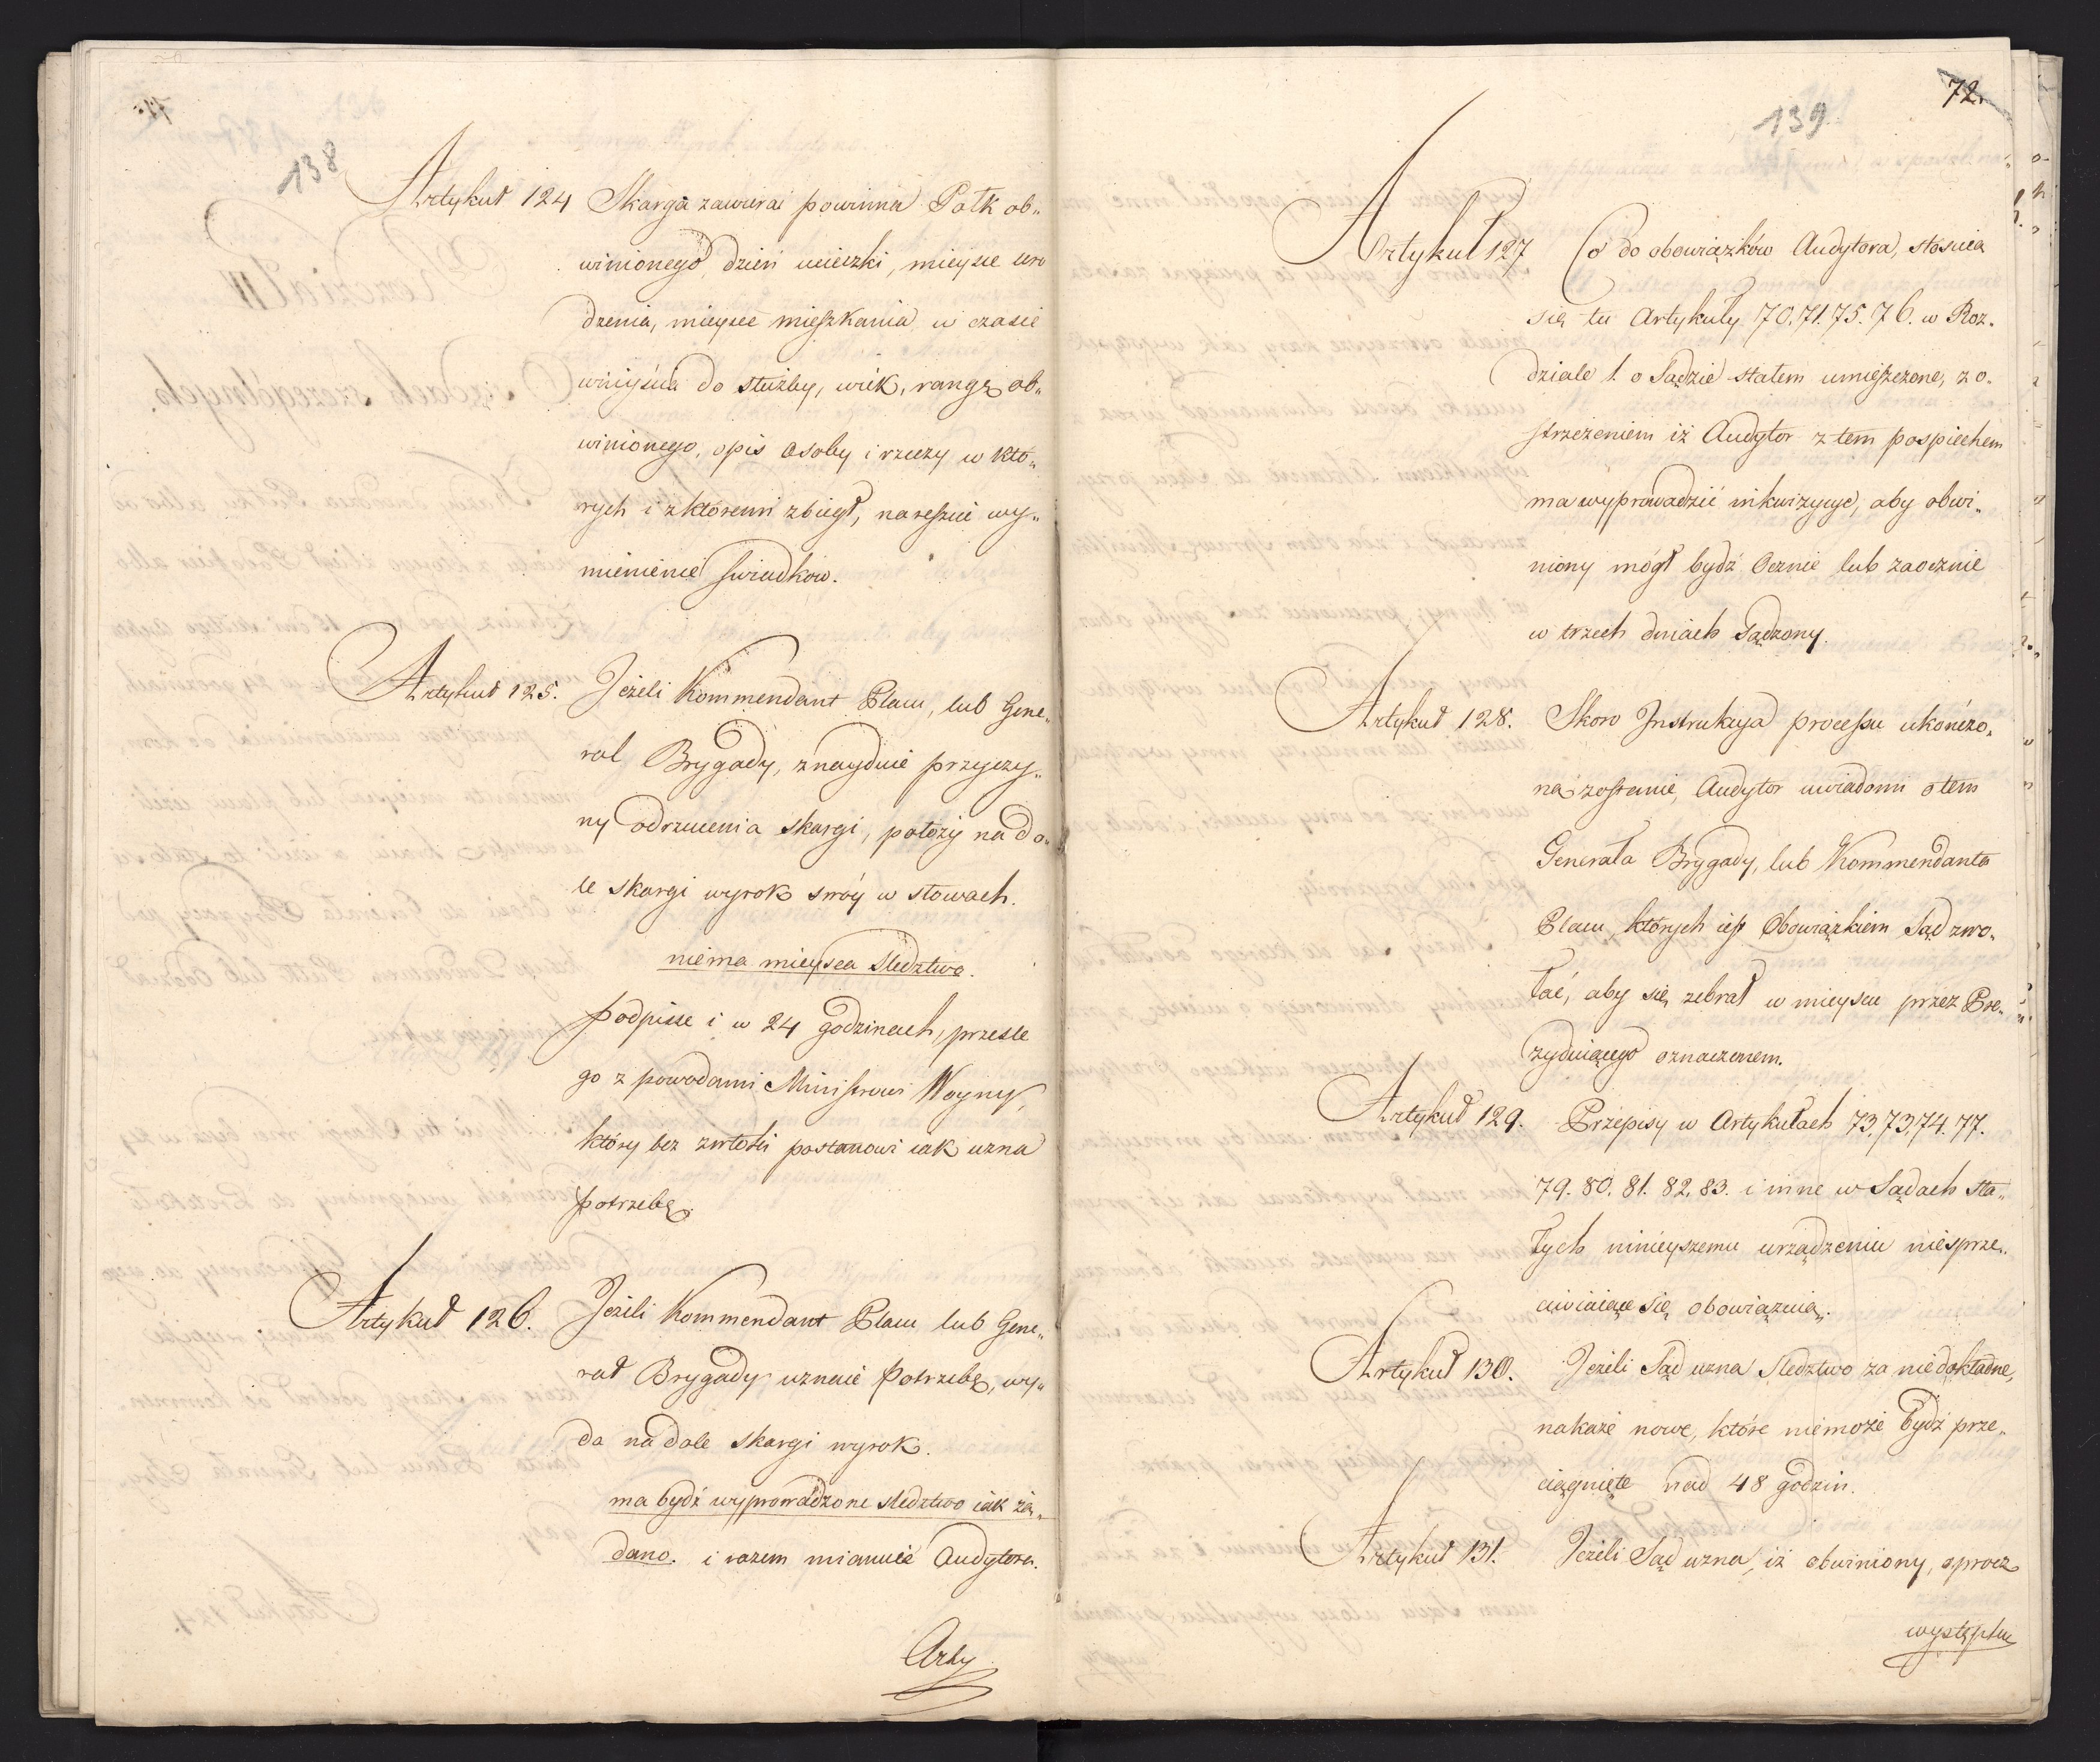 138
Artykuł 124 Skarga zawierać powinna Półk ob„
winionego, dzień ucieczki, mieysce uro
dzenia, mieysce mieszkania w czasie
wniyścia do służby, wiek, rangę ob„
winionego, opis osoby i rzeczy w któ„
rych i z któremi zbiegł, nareszcie wy„
mienienie swiadkow.
Artykuł 125. Jeżeli Kommendant Placu, lub Gene„
rał Brygady, znayduie przyczy„
ny odrzucenia skargi, położy na do„
le skargi wyrok swóy w słowach.
niema mieysca sledztwo.
podpisze i w 24 godzinach, przesle
go z powodami Ministrowi Woyny,
który bez zwłoki postanowi iak uzna
potrzebę.
Artykuł 126. Jeżeli Kommendant Placu lub Gene„
rał Brygady uznaie potrzebę, wy„
da na dole skargi wyrok.
ma bydź wyprowadzone sledztwo iak żą„
dano. i razem mianuie Audytora.
Arty
72.
139
Artykuł 127 Co do obowiązków Audytora, stosuią
się tu Artykuły 70. 71. 75. 76. w Roz.
dziale 1. o Sądzie stałem umieszczone, z o.
strzeżeniem iż Audytor z tem pospiechem
ma wyprowadzić inkwizycye, aby obwi„
niony mógł bydź Ocznie lub zaocznie
w trzech dniach Sądzony.
Artykuł 128. Skoro Instrukcya processu ukończo„
na zostanie, Audytor uwiadomi o tem
Generała Brygady, lub Kommendanta
Placu, których iest Obowiązkiem Sąd zwo„
łać, aby się zebrał w mieyscu przez Pre„
zyduiącego oznaczonem.
Artykuł 129. Przepisy w Artykułach 73, 73, 74. 77.
79. 80. 81. 82. 83. i inne w Sądach sta„
łych ninieyszemu urządzeniu niesprze„
ciwiaiące się, obowiązuią.
Artykuł 130. Jeżeli Sąd uzna sledztwo za niedokładne,
nakaże nowe, które niemoże bydź prze„
ciągnięte nad 48 godzin.
Artykuł 131. Jeżeli Sąd uzna, iż obwiniony, oprocz
występku